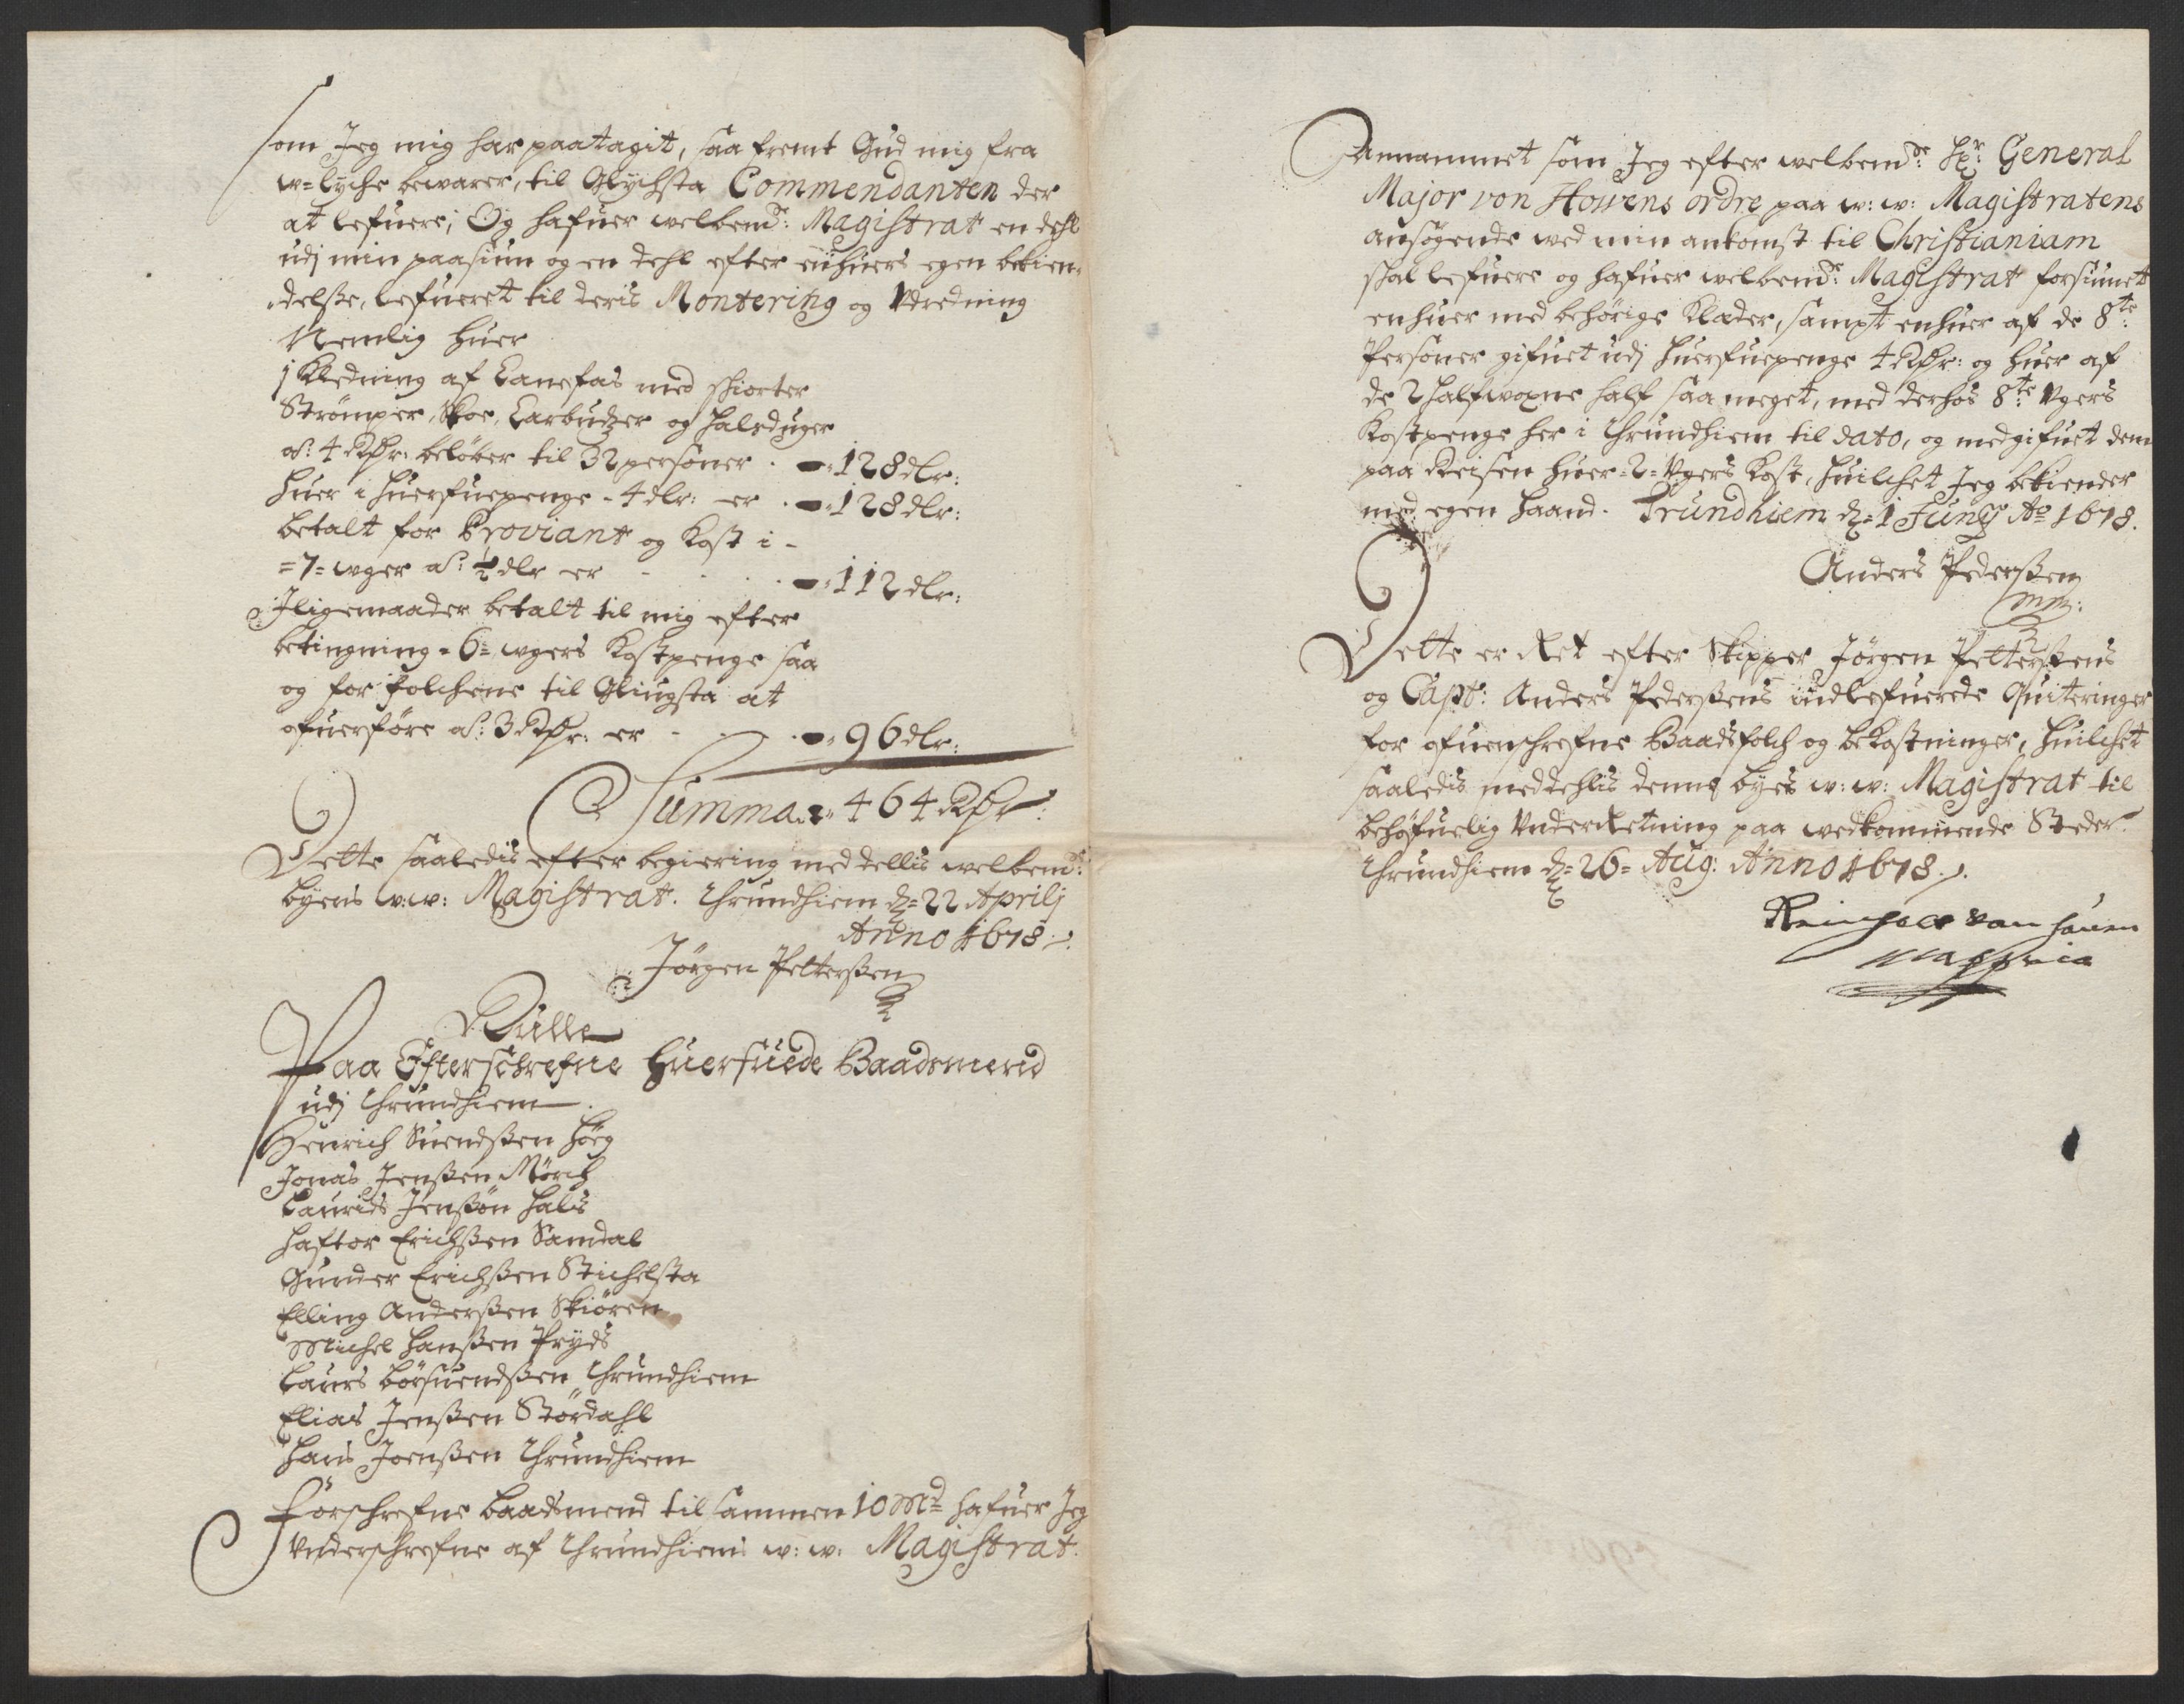 som Jeg mig har paatagit, saa fremt Gud mig fra
w=lyche bewarer, til Glychsta Commendanten der
at lefuere; Og hafuer welbemde: Magistrat en dehl
udj min paasiun og en dehl efter enhuers egen bekien-
delsse, lefueret til deris Montering og Udredning
Nemlig huer
1 Kledning af Canefas med skiorter
Strömper, Skoe, Carbudzer og halsduger
as: 4 Rdr: belöber til 32 personer . 128 dlr:
huer i huerfuepenge - 4 dlr: er . 128 dlr:
betalt for Proviant og Kost i -
=7= wger as: ½ dlr er - . . . 112 dlr:
Jligemaader betalt til mig efter
betingning =6= wgers Kostpenge saa
og for folchene til Gliugsta at
ofuerföre as: 3 Rdr: er - . . 96 dlr:
Summa 464 Rdr:
Dette saaledis efter begiering meddellis welbemte:
byens w:w: Magistrat. Thrundhiem d= 22 Aprilj
Anno 1678.
Jörgen Petterssen
Rulle
Paa Efterschrefne Huerfuede Baadsmend
udj Thrundhiem.
Henrich Suendssen Höeg
Jonas Jenssen Mörch
Laurids Jenssön Hals
Haftor Erichssen Samdal
Gunder Erichssen Stichelsta
Elling Anderssen Skiören
Michel Hanssen Pryds
Laurs Börsuendssen Thrundhiem
Elias Jenssen Stördahl
Hans Joenssen Thrundhiem
Forschrefne baadsmend tilsammen 10 Md= hafuer Jeg
Underschrefne af Thrundhiems w: w: Magistrat.
Annammet som Jeg efter welbemde: Hr: General
Major von Howens ordre paa w: w: Magistratens
ansögende wed min ankomst til Christianiam
skal lefuere og hafuer welbemde: Magistrat forsiunet
enhuer med behörige Klæder, sampt enhuer af de 8te:
Personer gifuet udj huerfuepenge 4 Rdr: og huer af
de 2 halfwoxne half saa meget, med derhos 8te Ugers
Kostpenge her i Thrundhiem til dato, og medgifuet dem
paa Reisen huer =2= Ugers Kost, huilchet Jeg bekiender
med egen haand. Trundhiem d= 1 Junij Ao 1678.
Anders Pederssen
mm:
Dette er Ret efter Skipper Jörgen Petterssens
og Capt: Anders Pederssens indlefuerede Quiteringer
for ofuenschrefne Baadsfolch og bekostninger, huilchet
saaledis meddehlis denne byes w: w: Magistrat til
behöfuelig Underretning paa wedkommende Steder.
Thrundhiem d= 26= Aug: Anno 1678.
Reinholt van Hauen